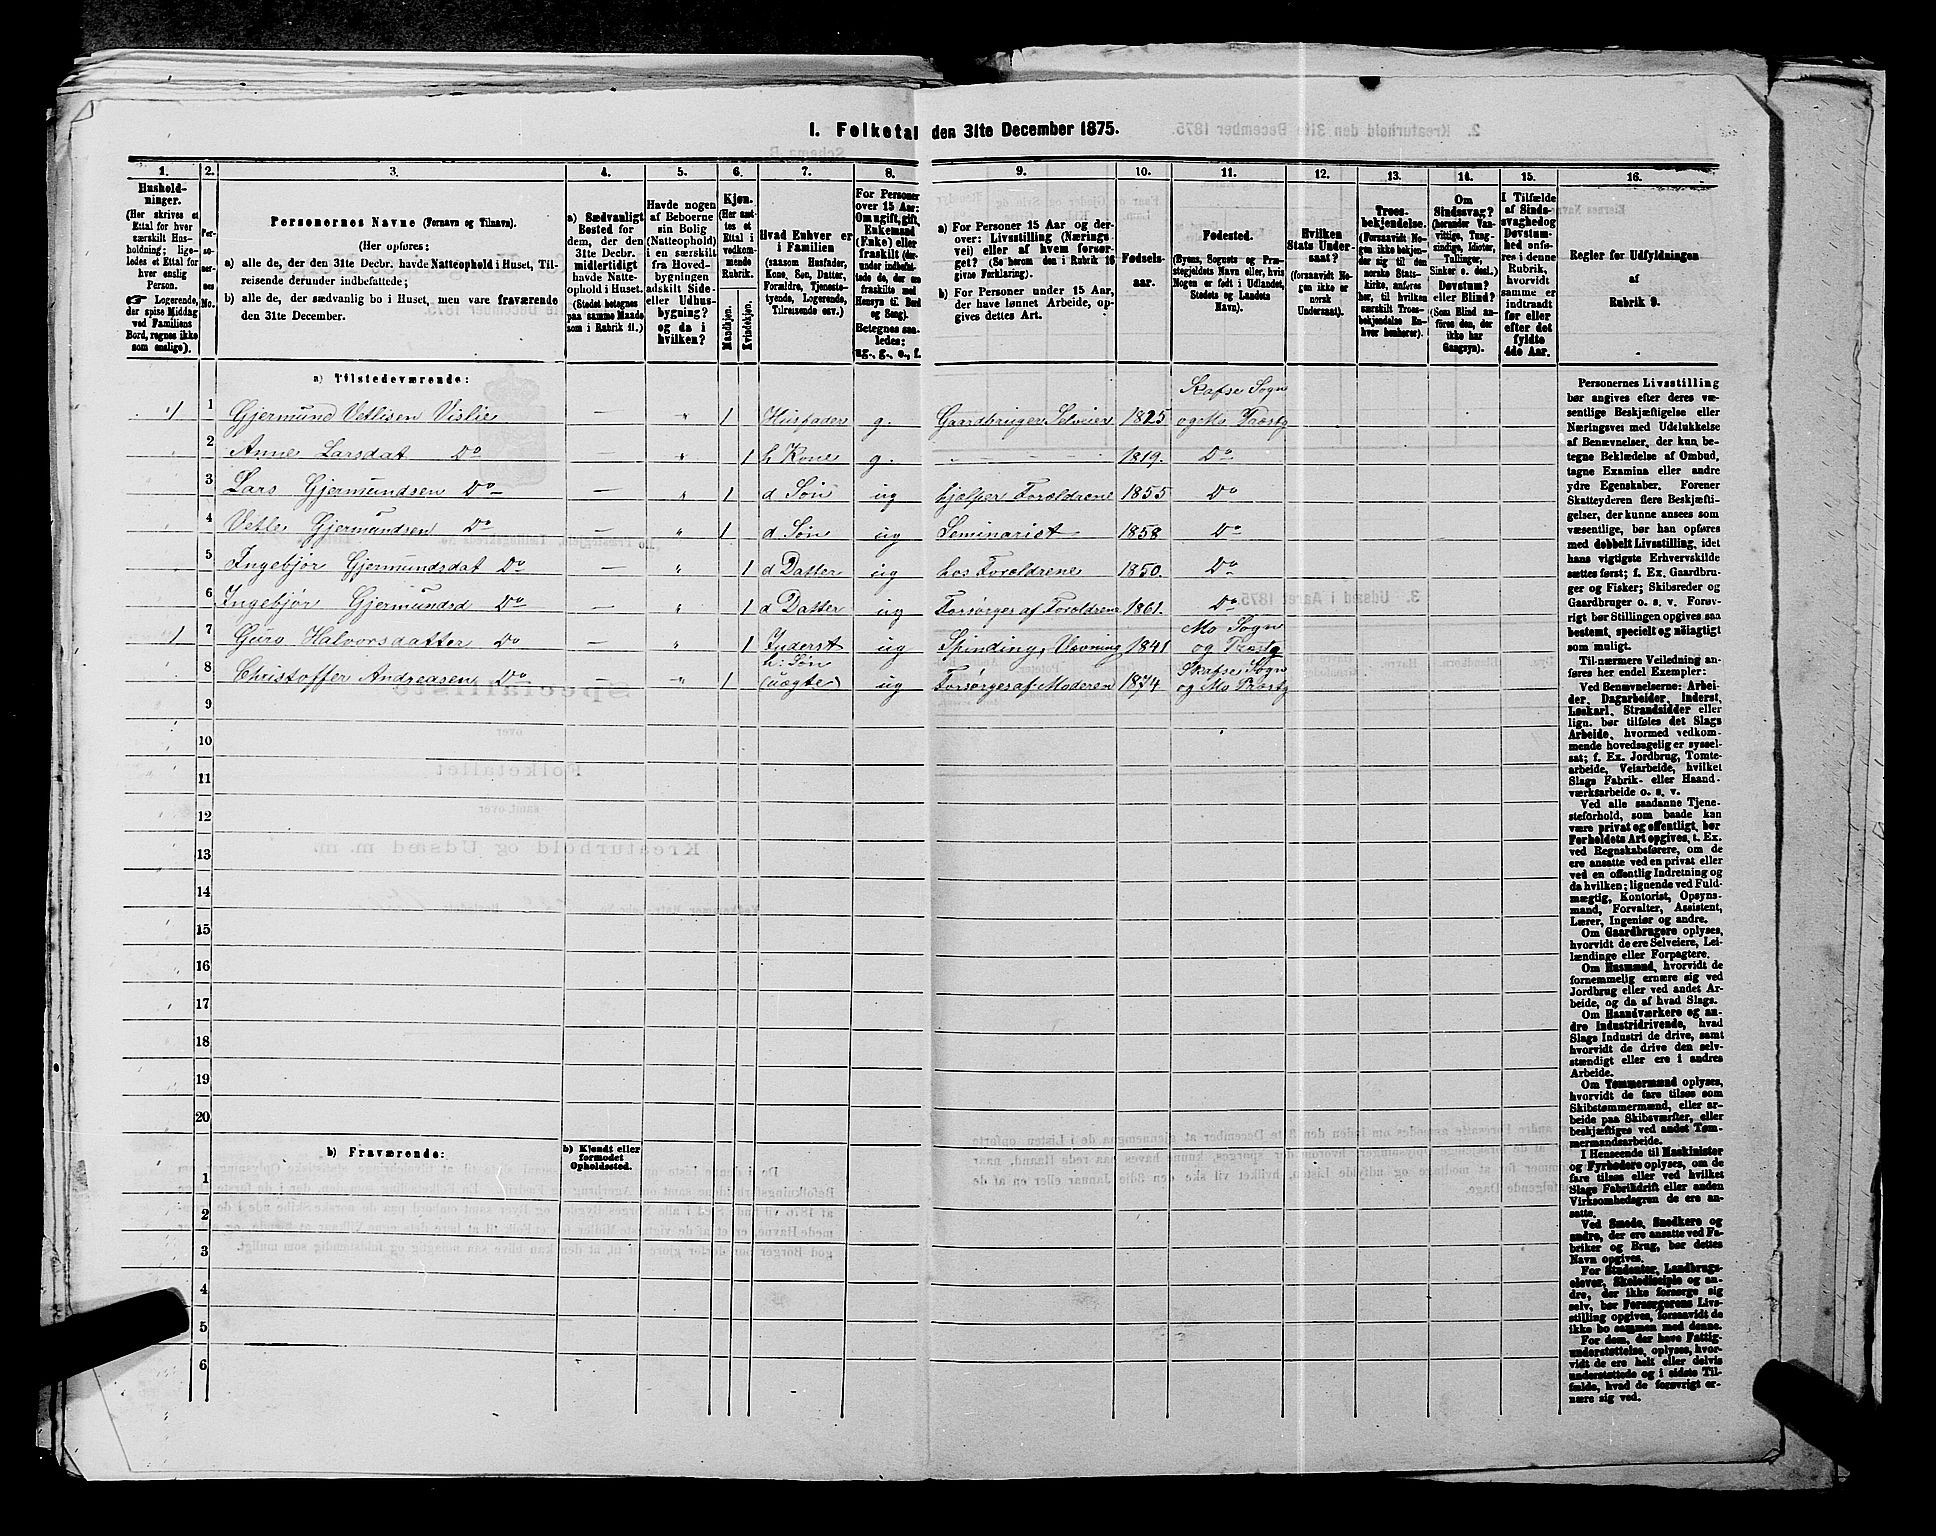 I. Folketal den 31te December 1875.
1. 2. 3. 4. 5. 6. 7. 8. 9. 10. 11. 12. 13. 14. 15. 16.
Husholdninger.
(Her skrives et
Ettal for hver
særskilt Husholdning; ligeledes et Ettal for
hver enslig
Person.
☞ Logerende,
der spise Middag
ved Familiens
Bord, regnes ikke
som enslige).
Personernes No.
Personernes Navne (Fornavn og Tilnavn).
(Her opføres:
a) alle de, der den 31te Decbr. havde Natteophold i Huset, Tilreisende derunder indbefattede;
b) alle de, der sædvanlig bo i Huset, men vare fraværende
den 31te December.
a) Sædvanligt
Bosted for
dem, der den
31te Decbr.
midlertidigt
havde Natteophold i Huset.
(Stedet betegnes
paa samme Maade
som i Rubrik 11.)
Havde nogen
af Beboerne
sin Bolig
(Natteophold)
i en særskilt
fra Hovedbygningen
adskilt Side-
eller Udhusbygning?
og da i
hvilken?
Kjøn.
(Her sættes et
Ettal i
vedkommende
Rubrik.
Mandkjøn.
Kvindekjøn.
Hvad Enhver er
i Familien
(saasom Husfader,
Kone, Søn, Datter,
Forældre, Tjenestetyende, Logerende,
Tilreisende osv.)
For Personer
over 15 Aar:
Om ugift, gift,
Enkemand
(Enke) eller
fraskilt
Betegnes saaledes:
ug., g., e., f.
a) For Personer 15 Aar og derover: Livsstilling (Næringsvei) eller af hvem forsørget? (Se herom den i Rubrik 16
givne Forklaring).
b) For Personer under 15 Aar,
der have lønnet Arbeide, opgives dettes Art.
Fødselsaar.
Fødested.
(Byens, Sognets og Præstegjeldets Navn eller, hvis
Nogen er født i Udlandet,
Stedets og Landets
Navn).
Hvilken
Stats Undersaat?
(forsaavidt Nogen ikke er
norsk
Undersaat).
Troesbekjendelse.
(Forsaavidt Nogen ikke bekjender sig til den
norske Statskirke, anføres
her, til hvilken
særskilt Troesbekjendelse Enhver henhører).
Om
Sindssvag?
(herunder Vanvittige, Tungsindige, Idioter,
Tullinger,
Sinker o. desl.)
Døvstum?
eller Blind?
(Som Blind anføres den, der
ikke har
Gangsyn).
I Tilfælde
af Sindssvaghed og
Døvstumhed anføres i denne
Rubrik,
hvorvidt
samme er
indtraadt
før eller
efter det
fyldte
4de Aar.
Regler for Udfyldningen
af
Rubrik 9.
a) Tilstedeværende:
1 1 Gjermund Vetlisen Vislie — " 1 Husfader g. Gaardbruger Selveier 1825 Skafse Sogn og Mo Præstg
2 Anne Larsdat Do — " 1 h Kone g. 1819. Do
3 Lars Gjermundsen Do — " 1 d Søn ug hjelper Forældrene 1855 Do
4 Vetle Gjermundsen Do — " 1 d Søn ug Seminarist 1858 Do
5 Ingebjør Gjermundsdat Do — " 1 d Datter ug hos Forældrene 1850. Do
6 Ingebjør Gjermundsd Do — " 1 d Datter ug Forsørges af Forældrene 1861. Do
1 7 Guro Halvorsdatter Do — " 1 Inderst ug Spinding, Vævning 1841 Mo Sogn og Præstg
8 Christoffer Andreasen Do — " 1 h: Søn (uægte) ug Forsørges af Moderen 1874 Skafse Sogn og Mo Præstg
9
10
11
12
13
14
15
16
17
18
19
20
b) Fraværende:
b) Kjendt eller
formodet
Opholdssted.
1
2
3
4
5
6
Personernes Livsstilling
bør angives efter deres væsentlige Beskjæftigelse eller
Næringsvei med Udelukkelse
af Benævnelser, der kun betegne Beklædelse af Ombud,
tagne Examina eller andre
ydre Egenskaber. Forener
Skatteyderen flere Beskjæftigelser, der kunne ansees som
væsentlige, bør han opføres
med dobbelt Livsstilling, idet
hans vigtigste Erhvervskilde
sættes først; f. Ex. Gaardbruger og Fisker; Skibsreder og
Gaardbruger o. s. v. Forøvrigt bør Stillingen opgives saa
bestemt, specielt og nøiagtigt
som muligt.
Til nærmere Veiledning anføres her endel Exempler:
Ved Benævnelserne: Arbeider, Dagarbeider, Inderst,
Løskarl, Strandsidder eller
lign. bør tilføies det Slags
Arbeide, hvormed vedkommende hovedsagelig er sysselsat; f. Ex. Jordbrug, Tomtearbeide, Veiarbeide, hvilket
Slags Fabrik- eller Haandværksarbeide o. s. v.
Ved alle saadanne Tjenesteforhold, som baade kan
være privat og offentligt, bør
Forholdets Art opgives, f. Ex.
ved Regnskabsførere, om de
ere ansatte ved en privat eller
ved en offentlig Indretning og
da hvilken; lignende ved Fuldmægtig, Kontorist, Opsynsmand, Forvalter, Assistent,
Lærer, Ingeniør og andre.
Om Gaardbrugere oplyses,
hvorvidt de ere Selveiere, Leilændinge eller Forpagtere.
Om Husmænd, hvorvidt de
fornemmelig ernære sig ved
Jordbrug eller ved andet Arbeide, og da af hvad Slags.
Om Haandværkere og andre Industridrivende, hvad
Slags Industri de drive, samt
hvorvidt de drive den selvstændigt eller ere i andres
Arbeide.
Om Tømmermænd oplyses,
hvorvidt de fare tilsøs som
Skibstømmermænd, eller arbeide paa Skibsværfter, eller
beskjæftiges ved andet Tømmermandsarbeide.
I Henseende til Maskinister
og Fyrbødere oplyses, om de
fare tilsøs eller ved hvilket
Slags Fabrikdrift eller anden
Virksomhedsgren de ere ansatte.
Ved Smede, Snedkere og
andre, der ere ansatte ved Fabriker og Brug, bør dettes
Navn opgives.
For Studenter, Landbrugselever, Skoledisciple og andre, der ikke forsørge sig
selv, bør Forsørgerens Livsstilling opgives, forsaavidt de
ikke bo sammen med denne.
For dem, der have Fattigunderstøttelse, oplyses, hvorvidt de ere helt eller delvis
understøttede og i sidste Tilfælde, hvad de forøvrigt ernære sig ved.